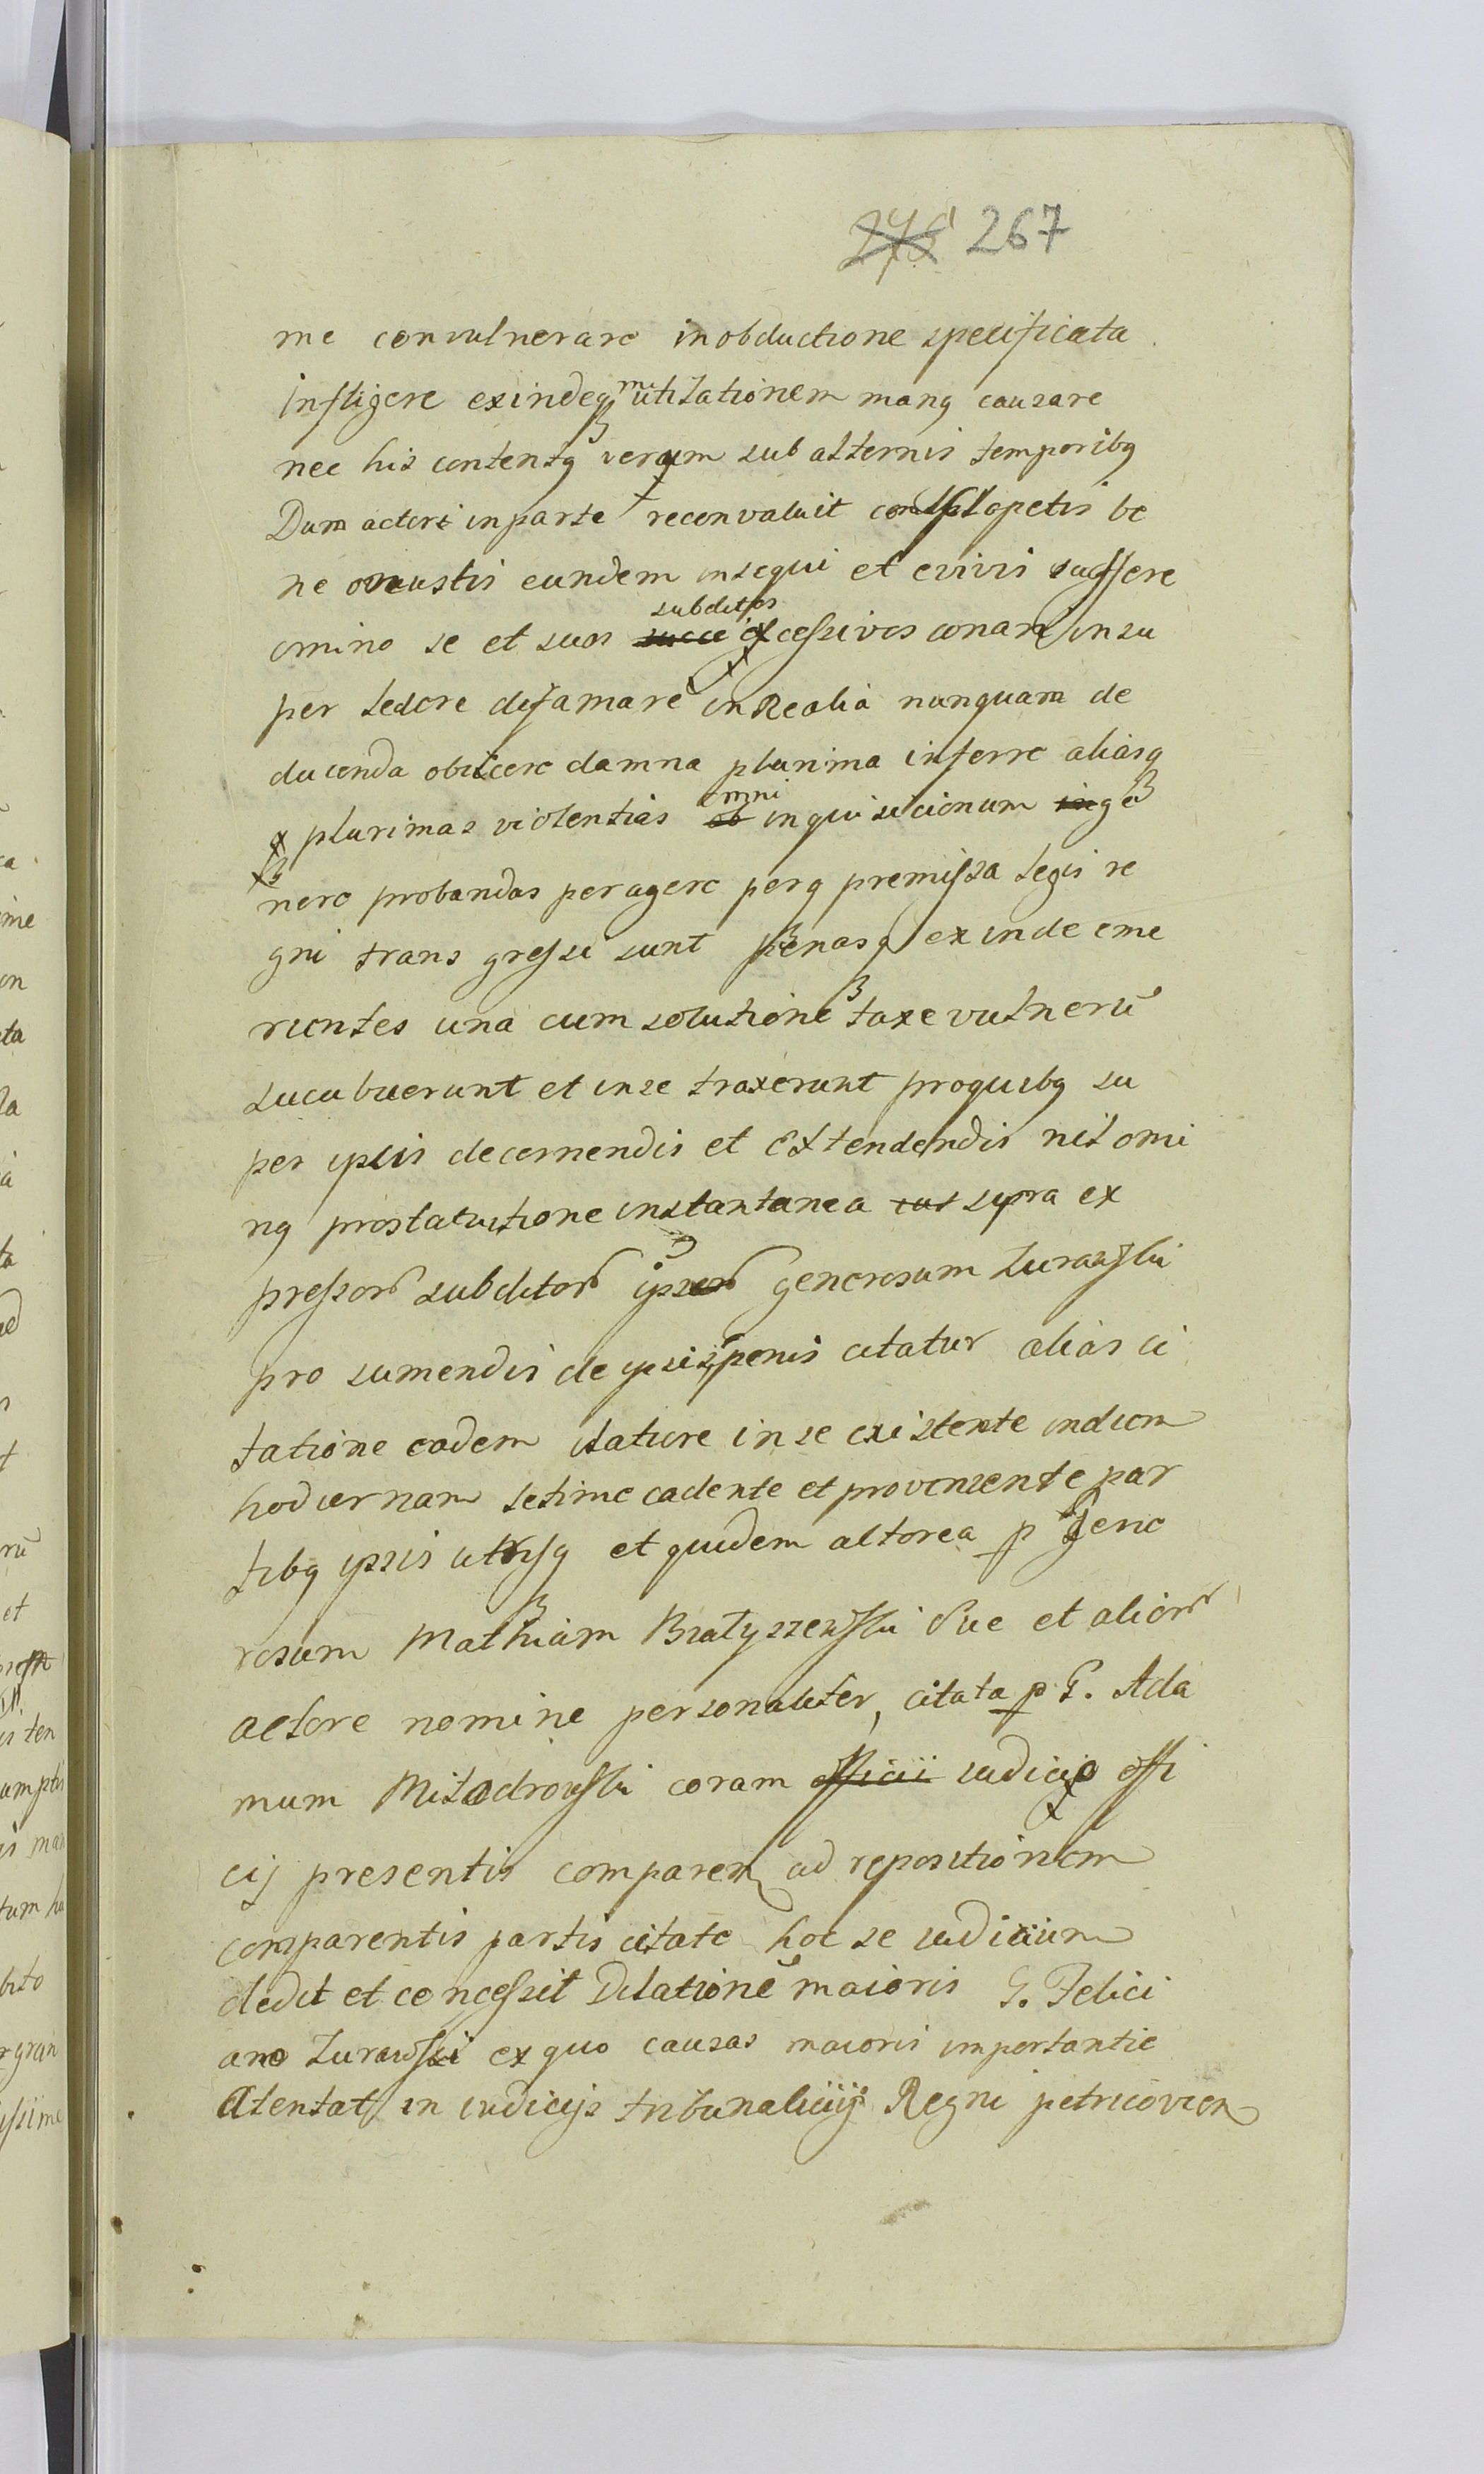 275 267
me convulnerare in obductione specificata
infligere exindeq mutilationem manq causare
nec his contentq verum sub alternis temporibq
Dum actori in parte reconvaluit sclopetis be
ne onustis eundem insequi et evivis
omino se et suos subditos excessivos conari insu
per ledere difamare in Realia nunquam de
ducenda obiicere damna plurima inferre aliasq
plurimas violentias omni inquisicionum ge
nere probandas peragere perq premissa legis re
gni trans gressi sunt penasq exinde eme
rientes una cum solutione taxe vulnerū
sucubuerunt et in se traxerunt proquibq su
per ipsis decernendis et extendendis nil omi
nq prostatuitione instantanea supra ex
pressor subditor generosum Zurawski
pro sumendis de ipsis penis citatur alias ci
tatione eadem itature in se existente in diem
hodiernam letime cadente et proveniente par
tibq ipsis utrisq et quidem altorea p Gene
rosum Mathiam Bratyszewski sue et alior
actore nomine personaliter, citata p G. Ada
mum Milodrowski coram officii iudicio offi
cij presentis comparen ad repositionem
comparentis partis citate hoc se iudicium
dedit et concessit Dilationē maioris G. Felici
ano Zurawski ex quo causas maioris importantie
Atentat in iudicijs tribunalicijs Regni petricovien